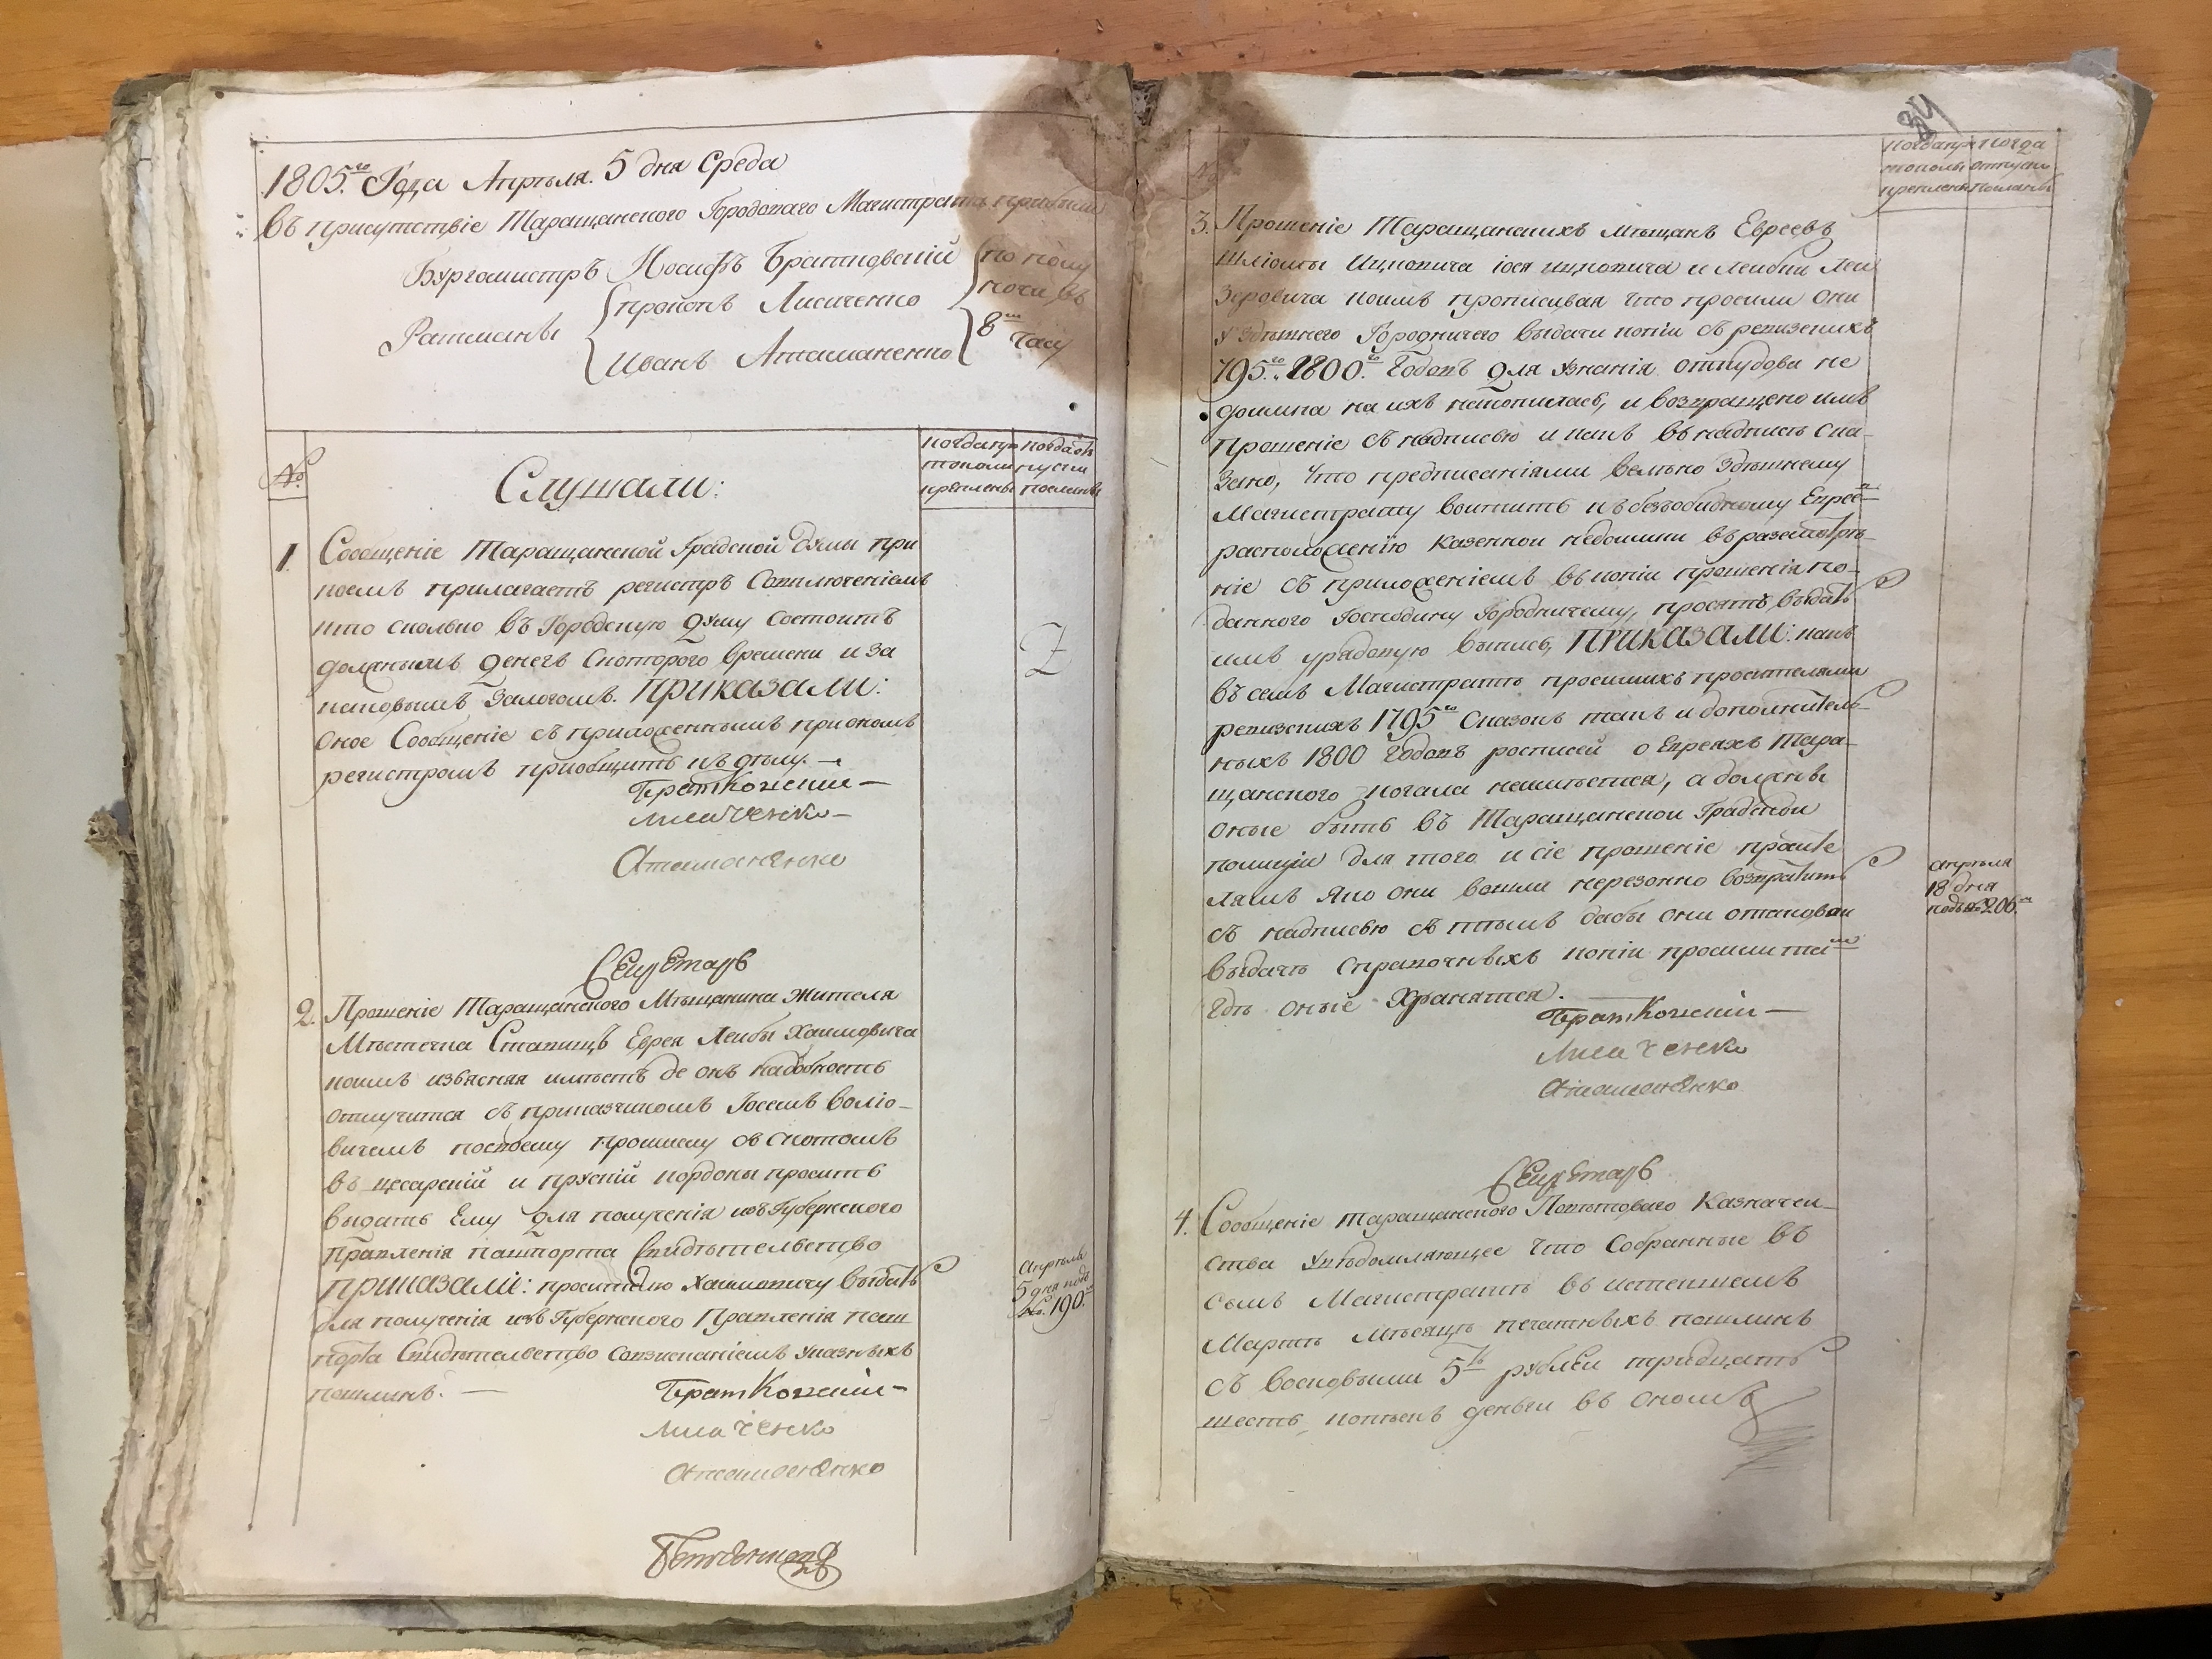 1805.го Года Апрѣля. 5 дня Среда
Въ присутствіе Таращанского Городоваго Магистрата прибыли
Бургомистръ Иосифъ Братковскій
по полу
Ратманы
Прокопъ Лисиченко
ночи въ
Иванъ Атаманенко
8м часу
№
Слушали:
Когда про
токолы
креплены
Когда от
пуски
посланы
1. Сообщеніе Таращанской Градской Думы при
коемъ прилагаетъ регистръ Совключеніемъ
кто сколько въ Городскую Думу состоитъ
должнымъ денегъ Скоторого времени и за
каковымъ Залогомъ. Приказали:
Оное Сообщеніе съ приложеннымъ при ономъ
регистромъ приобщить къ дѣлу. —
Братковскіи —
Лисиченко —
Атаманенко
Секретарь
2. Прошеніе Таращанского Мѣщанина жителя
Мѣстечка Ставищъ Еврея Лейбы Хаимовича
коимъ изъясняя имѣетъ де онъ надобность
отлучится съ приказчикомъ Іосемъ Волiо-
вичемъ посвоему промыслу съ скотомъ
въ цесарскій и прускій кордоны проситъ
выдать Ему для полученія изъ Губернского
Правленія пашпорта Свидѣтельство
Приказалі: просителю Хаимовичу выдать
для полученія изъ Губернского Правленія паш
порта Свидѣтельство Совзисканіемъ указныхъ
пошлинъ. —
Апрѣля
5 дня подъ
№. 190.м
Братковскіи —
Лисиченко
Атаманенко
34
Когда про
токолы
креплены
Когда
отпуски
посланы
3. Прошеніе Таращанскихъ мѣщанъ Евреевъ
Шліомы Ицковича іося ицковича и Лейбки Леи
зеровича коимъ прописивая что просили они
у Здѣшнего Городничего выдачи копіи съ ревизскихъ
795.го 1800.го Годовъ для узнанія откудова не
доимка на ихъ накопилась, и возвращено имъ
Прошеніе съ надписью и какъ въ надписѣ ска-
зано, что предписаніями велѣно Здѣшнему
Магистрату войтить къ безъобидному Еврей
расположенію казенной недоимки въ разсмотрѣ-
ніе съ приложеніемъ въ копіи прошенія по-
данного Господину Городничему, просятъ выдать
имъ урядовую выпись, Приказали: какъ
въ семъ Магистратѣ просимихъ просителями
ревизскихъ 1795го Сказокъ такъ и дополнитель-
ныхъ 1800 годовъ росписей о Евреяхъ Тара-
щанского Кагала неимѣется, а должны
оные быть въ Таращанской Градской
полиціи для того и сіе прошеніе просите
лямъ яко они вошли нерезонно возвратить
съ надписью съ тѣмъ дабы они отаковои
выдачѣ справочныхъ копіи просили там
гдѣ оные хранятся. —
Апрѣля
18 дня
подъ № 206.м
Братковскіи —
Лисиченко
Атаманенко
Секретарь
4. Сообщеніе таращанского Повѣтоваго Казначей-
ства Увѣдомляющее что Собранные въ
семъ Магистратѣ въ истекшемъ
Мартѣ Мѣсяцѣ печатныхъ пошлинъ
съ восковыми 5ть рублей тридцать
шесть, копѣекъ деньги въ ономъ